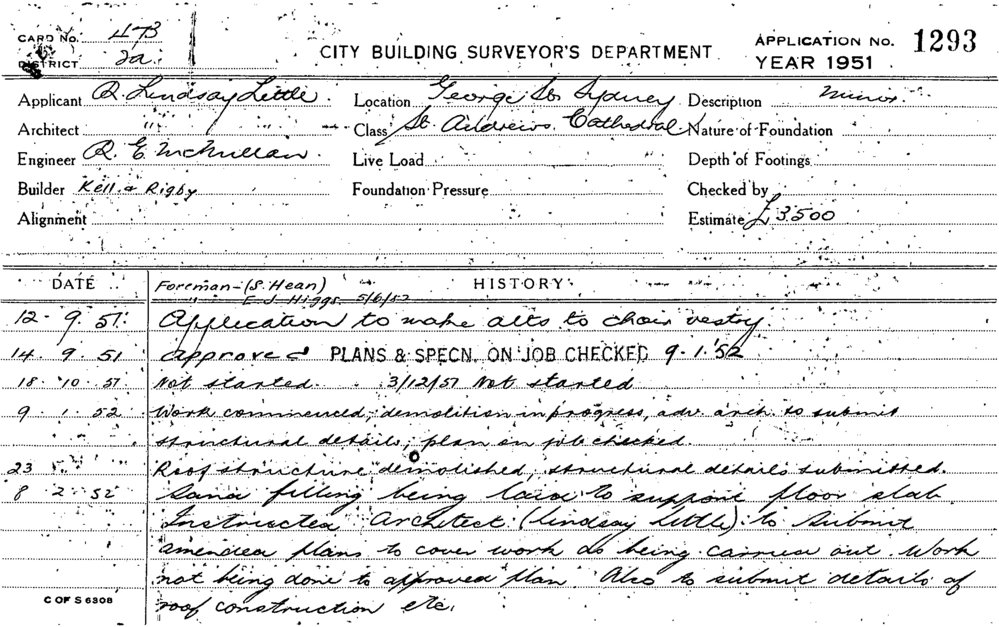 CARD No. 473
DISTRICT 2a.
CITY BUILDING SURVEYOR'S DEPARTMENT
APPLICATION No. 1293
YEAR 1951
Applicant R. Lindsay Little. Location George St. Sydney Description Minor.
Architect " " Class St. Andrews Cathedral Nature of Foundation
Engineer R. E. McMillan. Live Load Depth of Footings
Builder Kell & Rigby Foundation Pressure Checked by
Alignment Estimate £3500
DATE Foreman-(S. Hean) HISTORY
" E J Higgs. 5/6/52
12 . 9. 51. Application to make alts to choir vestry
14 . 9 . 51 approved PLANS & SPECN. ON JOB CHECKED 9.1.52
18 . 10 . 51 Not started. 3/12/51 Not started
9 . 1 . 52 Work commenced, demolition in progress, adv. arch. to submit
structural details, plan on job checked.
23 Roof structure demolished, structural details submitted.
8 2 . 52 Sand filling being laid to support floor slab
Instructed Architect (Lindsay Little) to submit
amended plans to cover work as being carried out. Work
not being done to approved plan. Also to submit details of
roof construction etc.
C OF S 6308